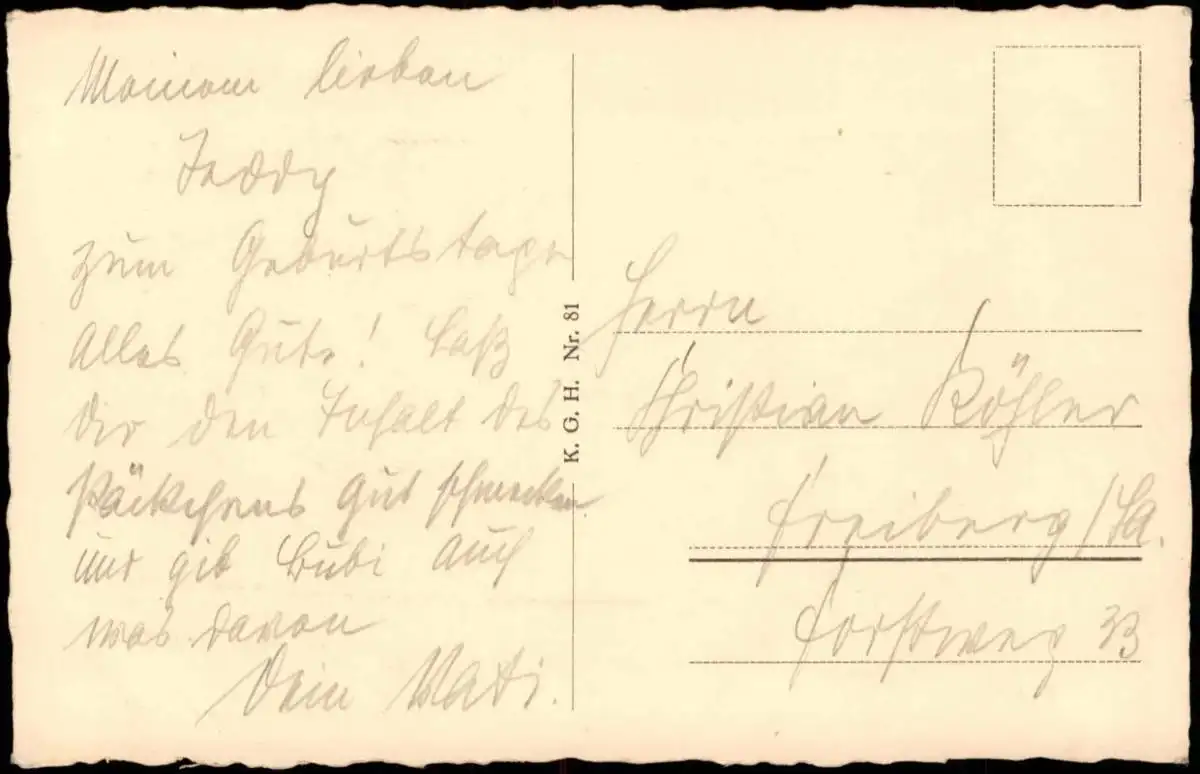 Meinem lieben
Teddy
zum Geburtstage
alles Gute! Laß
Dir den Inhalt des
Päckchens gut schmecken
und gib Bubi auch
was davon
Dein Vati.
K. G. H. Nr. 81
Herrn
Christian Köhler
Freiberg/Sa.
Forstweg 33